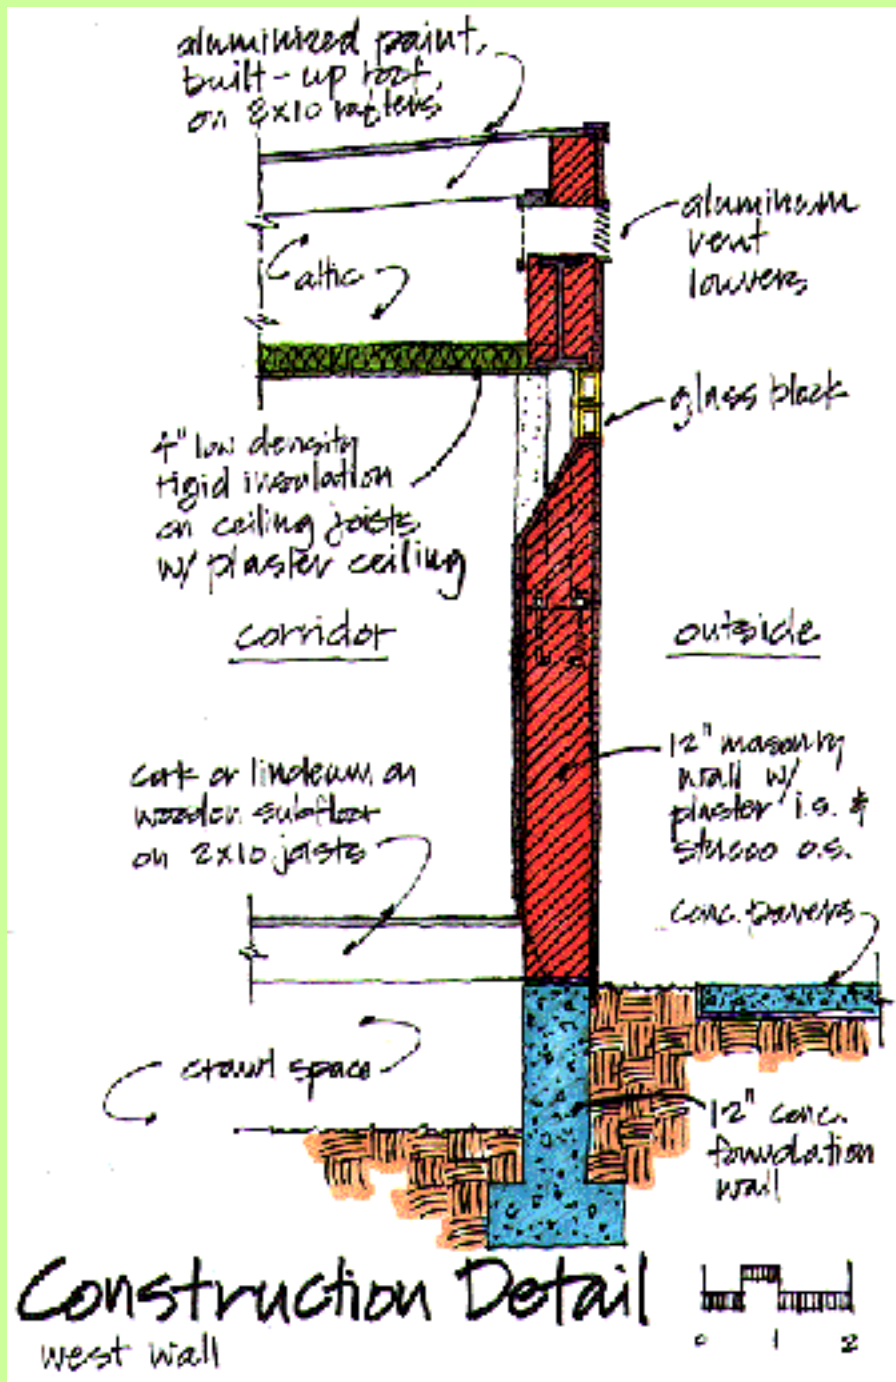 aluminized paint,
built-up roof,
on 2x10 rafters
aluminum
vent
louvers
attic
glass block
4" low density
rigid insulation
on ceiling joists
w/ plaster ceiling
corridor
outside
12" masonry
wall w/
plaster i.s. &
stucco o.s.
cork or linoleum on
wooden subfloor
on 2x10 joists
conc. pavers
crawl space
12" conc.
foundation
wall
Construction Detail
west wall
0 1 2